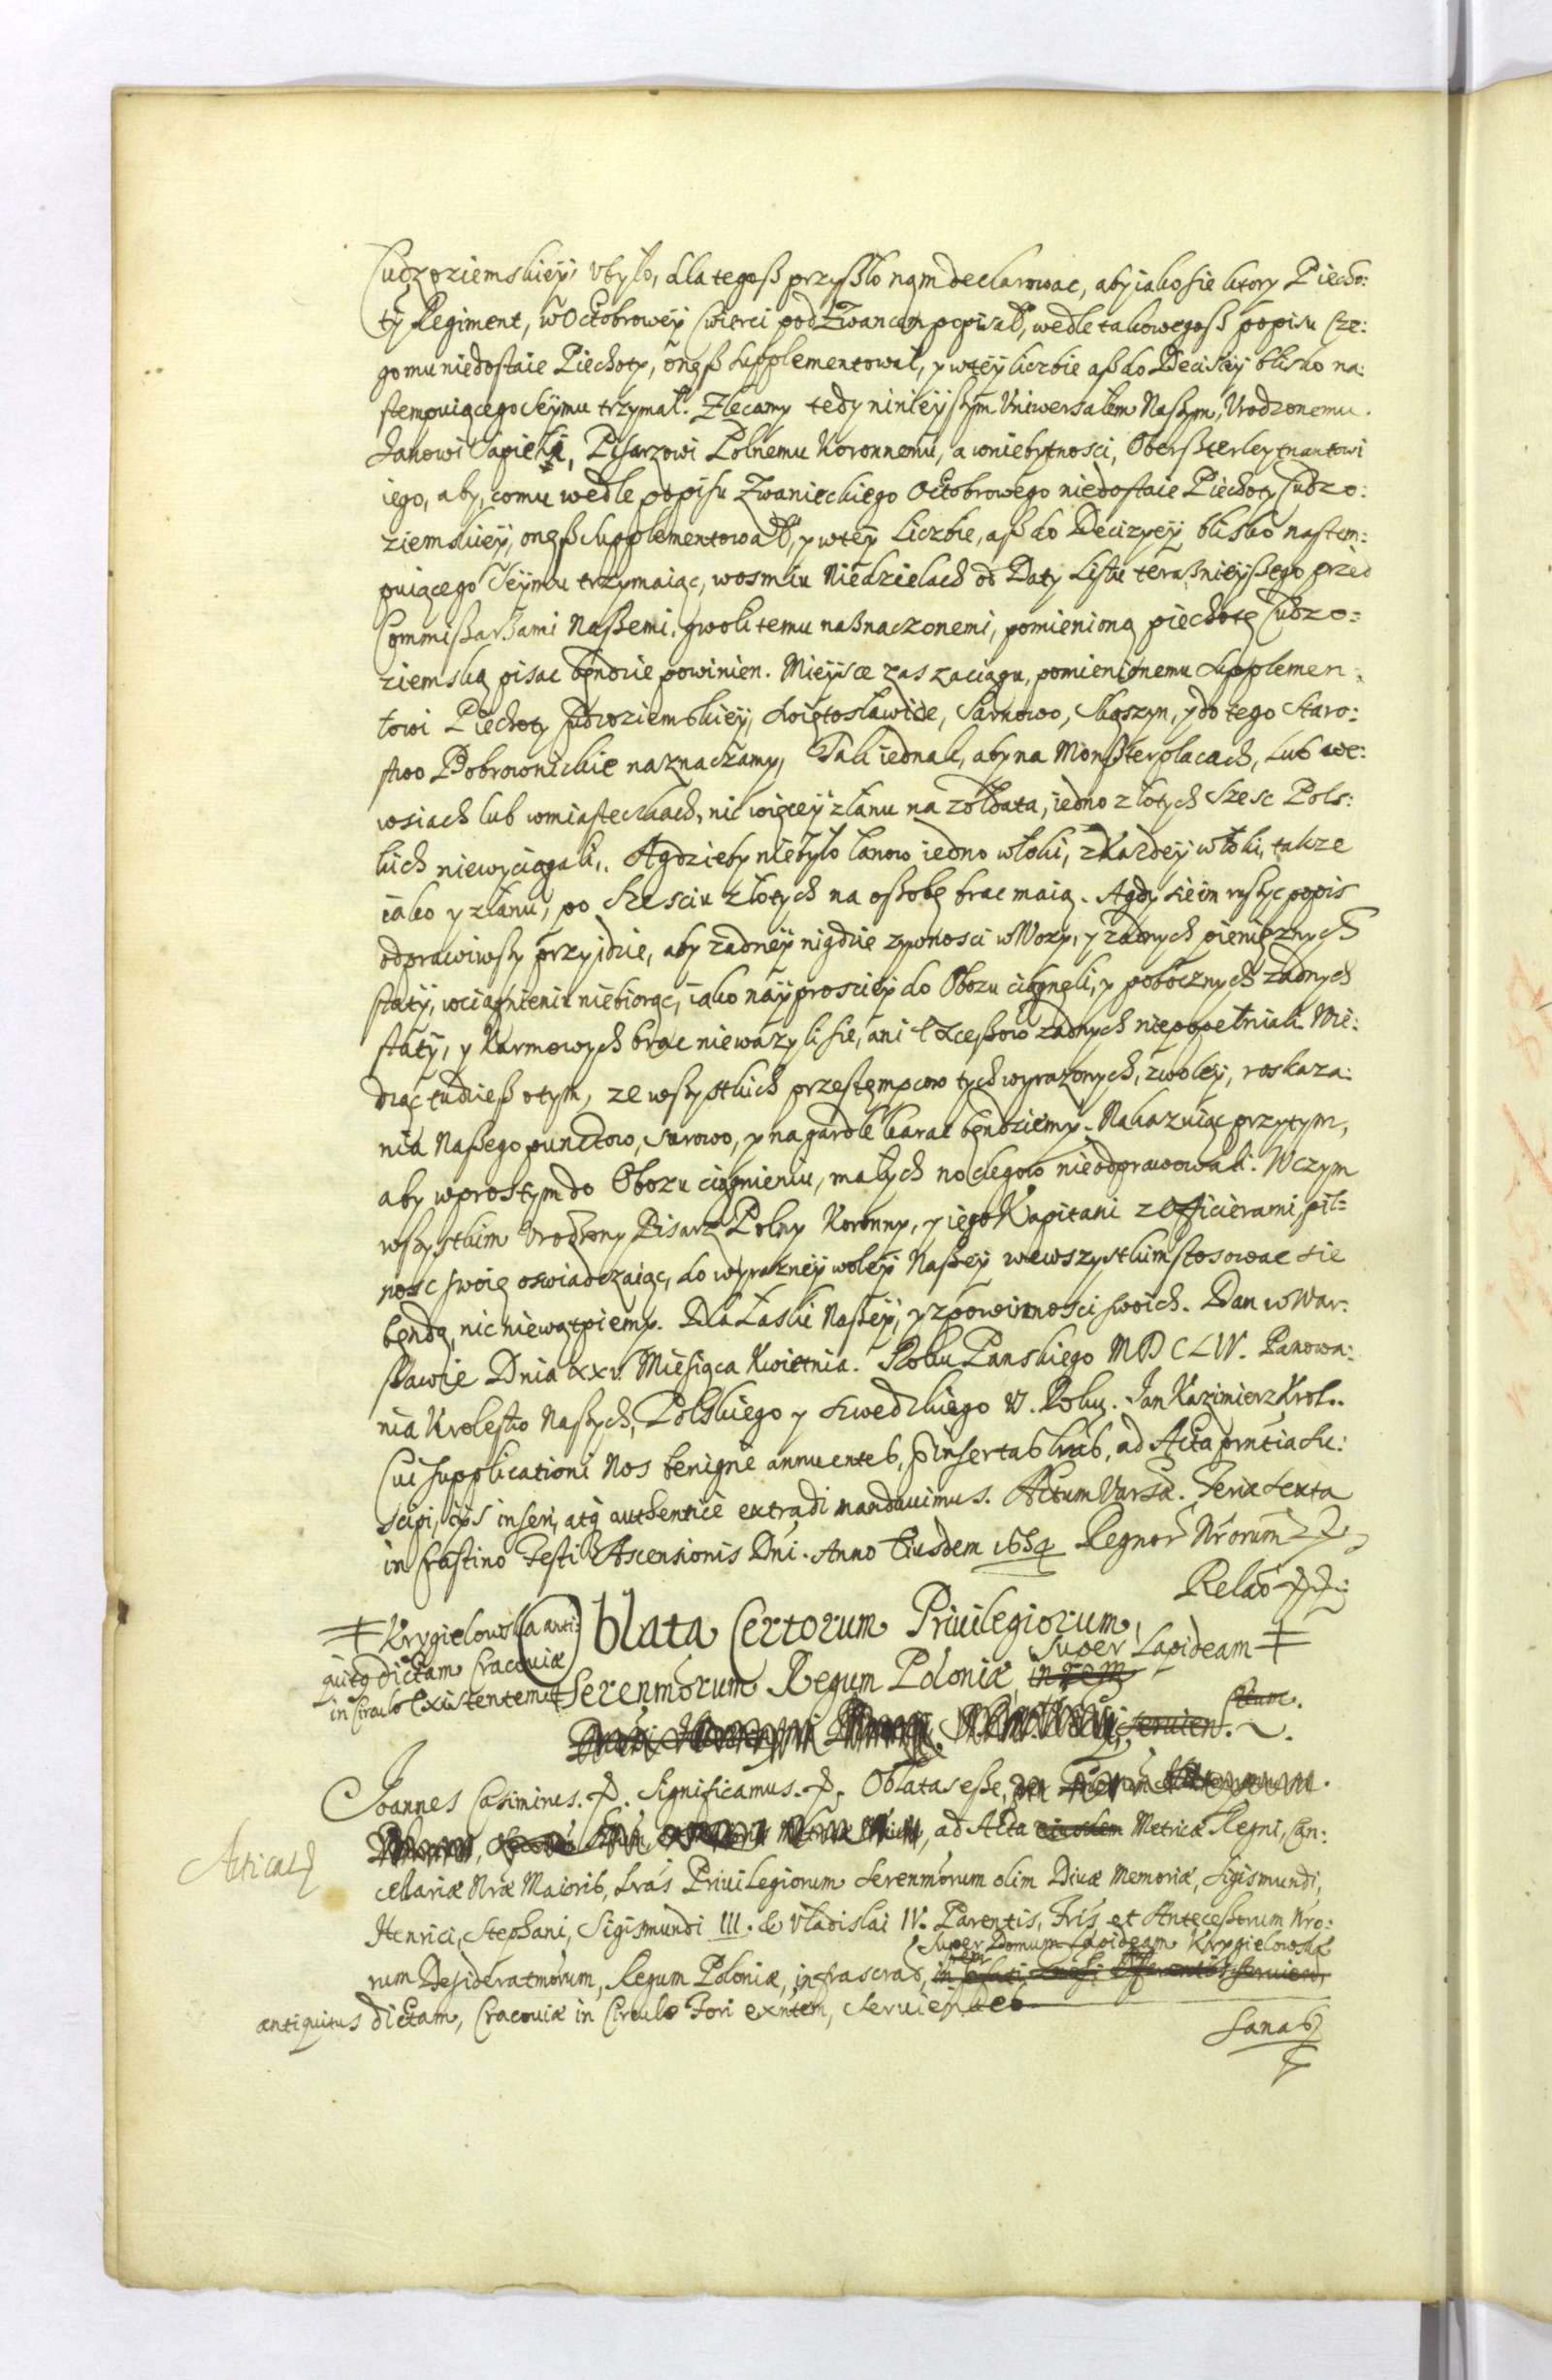 Cudzoziemskiey ubyło, dla tegoß przyßło nąm declarowac, aby iako sie ktory Piecho:
ty Regiment, w Octobrowey cwierci pod Zwancem popisał, wedle takowegoß popisu cze:
go mu niedostaie Piechoty, onęß supplementował, y w tey liczbie aß do Decisiey blisko na:
stempuiącego Seymu trzymał. Zlecamy tedy ninieyßym Vniwersałem Naßym, Vrodzonemu
Janowi Sapiezi, Pisarzowi Polnemu Koronnemu, a w niebytnosci, Oberßterleytnantowi
iego, aby, comu wedle popisu Zwanieckiego Octobrowego niedostaie Piechoty Cudzo:
ziemskiey, onęß supplementował, y w tey Liczbie, aß do Decizyey blisko nastem:
puiącego Seymu trzymaiąc, w osmiu Niedzielach od Daty Listu teraßnieyßego przed
Commißarzami Naßemi, gwoli temu naßnaczonemi, pomienioną piechotę Cudzo:
ziemską pisac będzie powinien. Mieysce zas zaciągu, pomienionemu supplemen:
towi Piechoty Cudzoziemskiey, Swiętosławice, Sarnowo, Skaszyn, y do tego Staro:
stwo Bobrownickie naznaczamy, Tak iednak, aby na Monßterplacach, lub we:
wsiach lub w miasteczkach, nic więcey z łanu na zołdata, iedno złotych szesc Pols:
kich niewyciągali. A gdzieby niebyło łanow iedno włoki, z kazdey włoki, takze
iako y z łanu, po szesciu złotych na osßobę brac maią. A gdy sie im rußyc popis
odprawiwßy przyidzie, aby zadney nigdzie zywnosci w Wozy, y zadnych pienięznych
stacyi, w ciągnieniu niebiorąc, iako nayprosciey do Obozu ciągnęli, y pobocznych zadnych
stacyi, y karmowych brac niewazyli sie, ani excessow zadnych niepopełniali. Wie:
dząc tudzieß o tym, ze wßystkich przestępcow tych wyrazonych, z woley, roskaza:
nia Naßego punctow, surowo, y na gardle karac będziemy. Nakazuiąc przytym,
aby w prostym do Obozu ciągnieniu, małych noclegow nieodprawowali. W czym
wßystkim Vrodzony Pisarz Polny Koronny, y iego Kapitani z Officierami pil:
nosc swoię oswiadczaiąc, do wyrazney woley Naßey we wszystkim stosowac sie
będą, nic niewątpiemy. Dla Łaski Naßey, y z powinnosci swoich. Dan w War:
ßawie Dnia xxv. Miesiąca Kwietnia. Roku Panskiego MDCLIV. Panowa:
nia Krolestw Naßych, Polskiego y Szwedzkiego VI. Roku. Jan Kazimierz Krol.
Cui supplicationi Nos benigne annuentes, pinsertas lras, ad Acta pntia su:
scipi, ijs inseri, atq authentice extradi mandavimus. Actum Varsae. Feria sexta
in Crastino Festi Ascensionis Dni. Anno Eiusdem 1654 Regnor Nrorum
Relao
Krygielowska anti:
quitg dictam Cracoviæ
in Circulo existentem
Oblata Certorum Privilegiorum
Serenmorum Regum Poloniæ, in rem super Lapideam
servien.
Joannes Casimirus. Significamus. Oblatas esse,
Acticat
ad Acta eiusdem Metricæ Regni, Can:
cellariæ Nræ Maioris, lras Privilegiorum Serenmorum olim Divæ Memoriæ, Sigismundi,
Henrici, Stephani, Sigismundi III. & Vladislai IV. Parentis, Fris et Antecessorum Nro:
super Domum Lapideam Krygielowska
rum Desideratmorum, Regum Poloniæ, infrascras,
antiquitus dictam, Cracoviæ in Circulo Fori exntem, servientes
sanas